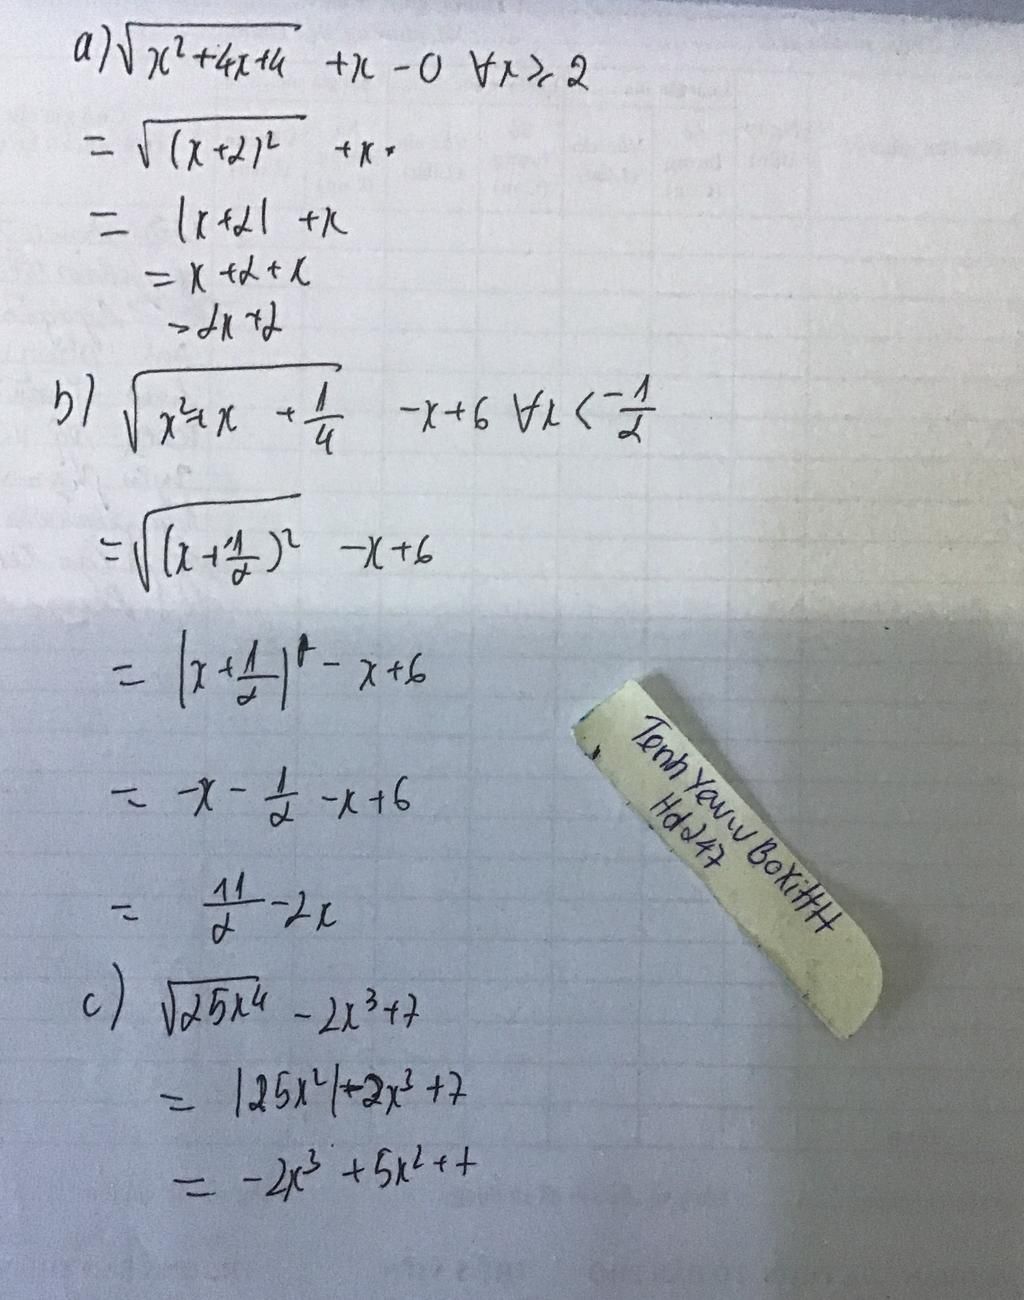 a) √(x²+4x+4) +x -0 ∀x ≥ 2
= √((x+2)²) +x.
= |x+2| +x
= x +2+x
→ 2x+2
b) √(x²+x +1/4) -x+6 ∀x < -1/2
= √((x+1/2)²) -x+6
= |x+1/2| - x+6
= -x - 1/2 -x+6
= 11/2 -2x
c) √(25x⁴) -2x³+7
= |25x²| -2x³ +7
= -2x³ +5x²++
TenhYeuw BoXiHH
Hd247